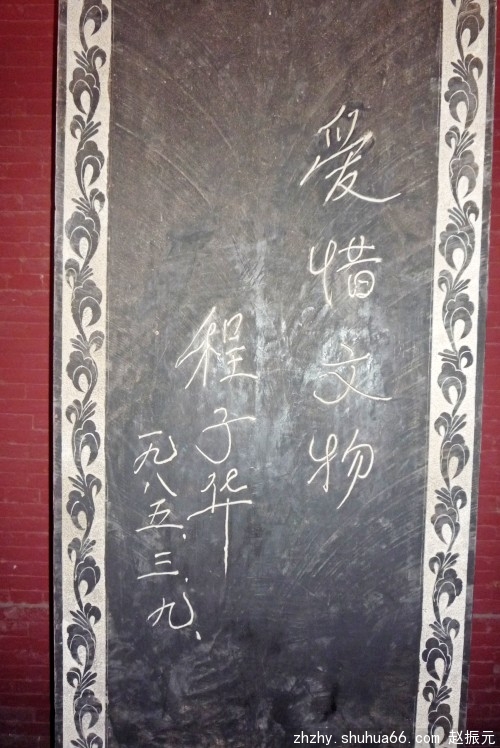 爱惜文物
程子华
一九八五、三、九、
zhzhy.shuhua66.com 赵振元